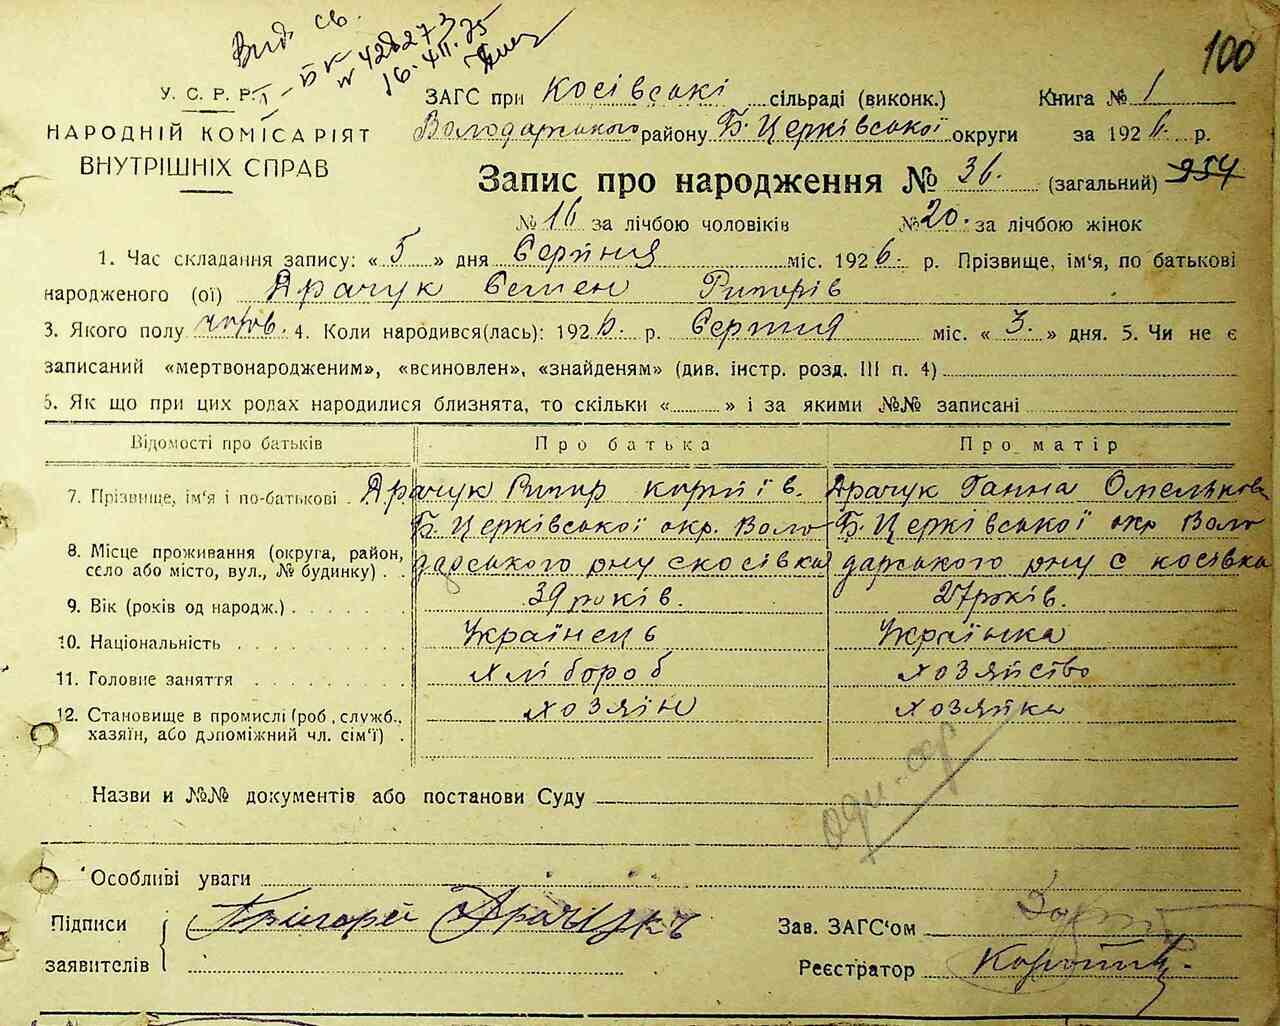 Вид. св.
І-БК № 428273
16.VII.75
100
У. С. Р. Р.
НАРОДНІЙ КОМІСАРІЯТ
ВНУТРІШНІХ СПРАВ
ЗАГС при Косівські сільраді (виконк.) Книга № 1
Володарського району Б. Церківської округи за 1926 р.
Запис про народження № 36. (загальний) 954
№ 16 за лічбою чоловіків № 20. за лічбою жінок
1. Час складання запису: «5» дня Серпня міс. 1926. р. Прізвище, ім'я, по батькові
народженого (ої) Драчук Семен Григорів
3. Якого полу чолов. 4. Коли народився(лась): 1926. р. Серпня міс. «3.» дня. 5. Чи не є
записаний «мертвонародженим», «всиновлен», «знайденям» (див. інстр. розд. III п. 4)
6. Як що при цих родах народилися близнята, то скільки «...» і за якими №№ записані
Відомості про батьків Про батька Про матір
7. Прізвище, ім'я і по-батькові . Драчук Ригир Корніїв. Драчук Ганна Омелькова
Б. Церківської окр. Воло Б. Церківської окр Воло
8. Місце проживання (округа, район,
село або місто, вул., № будинку) . . дарського рну с косівка дарського рну с косівка
9. Вік (років од народж.) 39 років. 27 років.
10. Національність Українець Українка
11. Головне заняття хлібороб хозяйство
12. Становище в промислі (роб., служб.,
хазяїн, або допоміжний чл. сім'ї) . хозяін хозяйка
Назви и №№ документів або постанови Суду
Особливі уваги
Підписи
заявителів
Григорей Драчукъ
Зав. ЗАГС'ом
Реєстратор